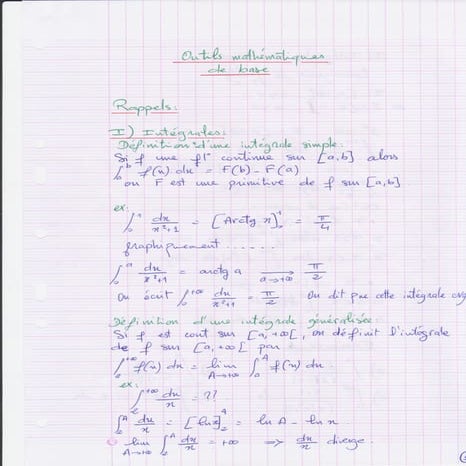 Outils mathématiques
de base
Rappels:
I) Intégrales:
Définition d'une intégrale simple:
Si f une f° continue sur [a,b] alors
∫_a^b f(x) dx = F(b) - F(a)
où F est une primitive de f sur [a,b]
ex:
∫_0^1 dx/(x²+1) = [Arctg x]_0^1 = π/4
graphiquement ......
∫_0^a dx/(x²+1) = arctg a ⟶ (a→+∞) π/2
On écrit ∫_0^{+∞} dx/(x²+1) = π/2 On dit que cette intégrale
Définition d'une intégrale généralisée:
Si f est cont sur [a,+∞[, on définit l'intégrale
de f sur [a,+∞[ par:
∫ f(x) dx = lim_{A→+∞} ∫ f(x) dx
ex:
∫^{+∞} dx/x = ??
∫_2^A dx/x = [ln x]_2^A = ln A - ln
lim_{A→+∞} ∫_2^A dx/x = +∞ ⟹ dx/x diverge.